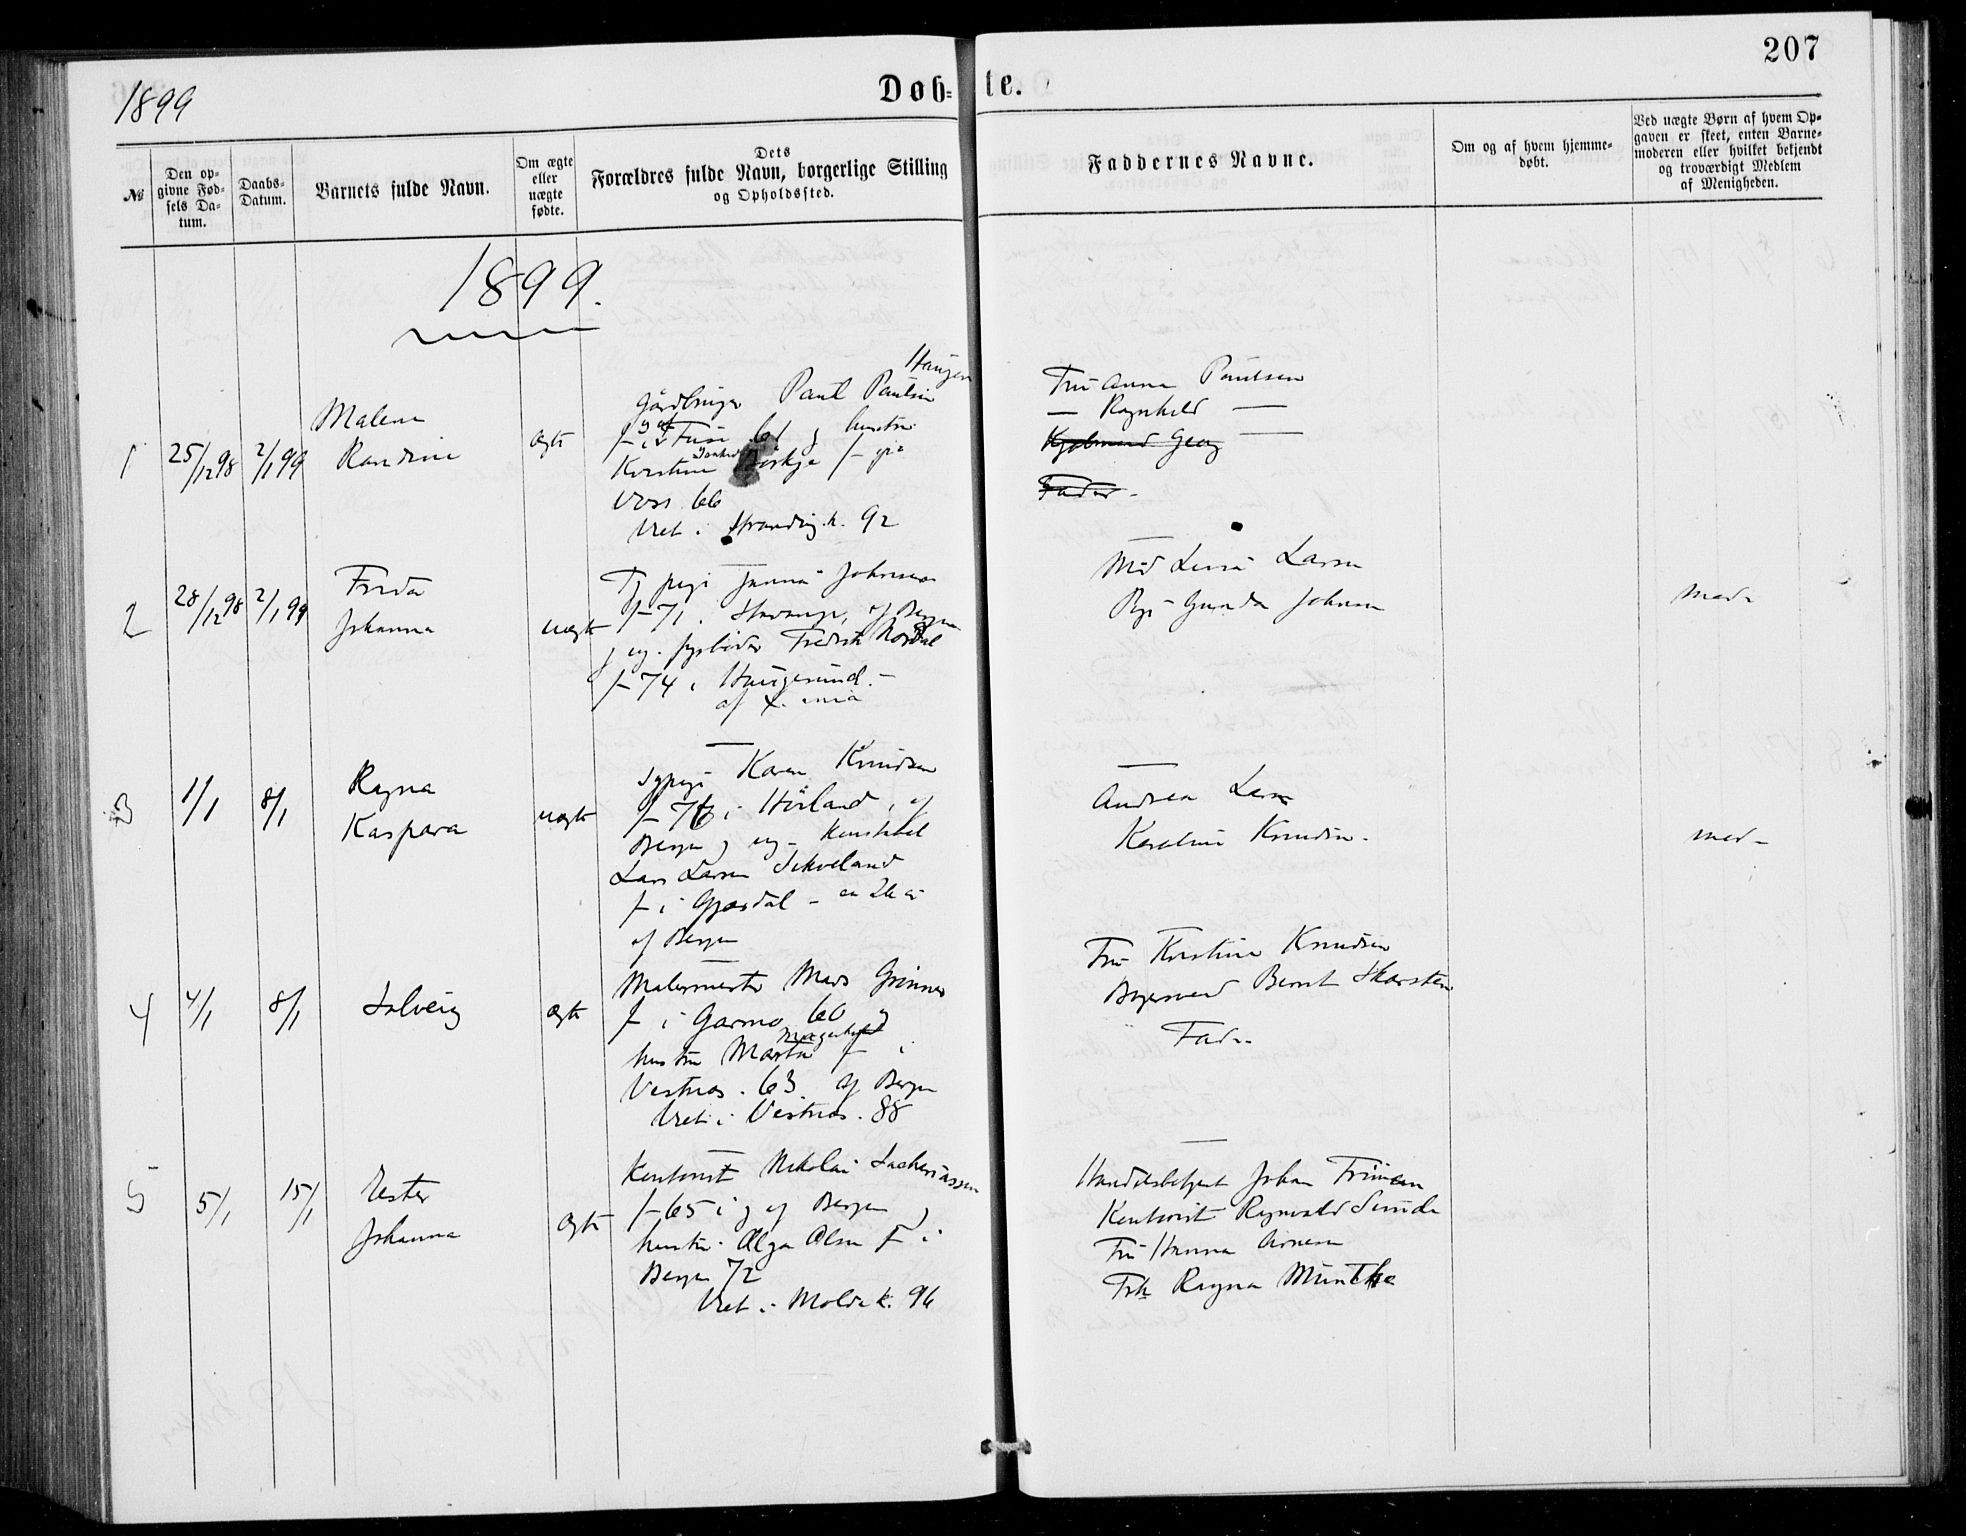 207
1899
Døb=
te.
№
Den op-
givne Fød-
sels Da-
tum.
Daabs-
Datum.
Barnets fulde Navn.
Om ægte
eller
uægte
fødte.
Dets
Forældres fulde Navn, borgerlige Stilling
og Opholdssted.
Faddernes Navne.
Om og af hvem hjemme-
døbt.
Ved uægte Børn af hvem Op-
gaven er skeet, enten Barne-
moderen eller hvilket bekjendt
og troværdigt Medlem
af Menigheden.
1899.
1
25/12 98
2/1 99
Malene
Randine
ægte
Haugen
Gårdbruger Paul Paulsen
f- i Fuse 61 og hustru
Kristine
Voss 66
Viet i Strandvig k. 92
Fru Anna Paulsen
— Ragnhild —
Georg —
Fader -
2
28/12 98
2/1 99
Frida
Johanna
uægte
Tj. pige Johnsen
f- 71 i Stavanger, af Bergen
og ug. fyrbøder Fredrik Nordal
f- 74 i Haugesund -
af
Larsen
Pige Gunda Johnsen
mod
3
1/1
8/1
Ragna
Kaspara
uægte
sypige Karen Knudsen
f- 76 i Hörland, af
Bergen og ug. konstabel
Lars Larsen Sikveland
f- i Gjesdal - ca 26 år
af Bergen
Andrea Larsen
Karoline Knudsen -
mod -
4
4/1
8/1
Solveig
ægte
Malermester Mads Grönnes
f i Garmo 60 og
hustru Marta f i
Vestnes . 63 af Bergen
Viet i Vestnes . 88
Fru Kristine Knudsen
Bernt Skarsten
Fader
5
5/1
15/1
Ester
Johanna
ægte
Kontorist Nikolai Sachariassen
f- 65 i og af Bergen og
hustru Olga Olsen f i
Bergen 72
Viet i Molde k. 96
Handelsbetjent Johan
Kontorist Ragnvald Sunde
Fru Hanna Arnesen
Frk Ragna Munthe